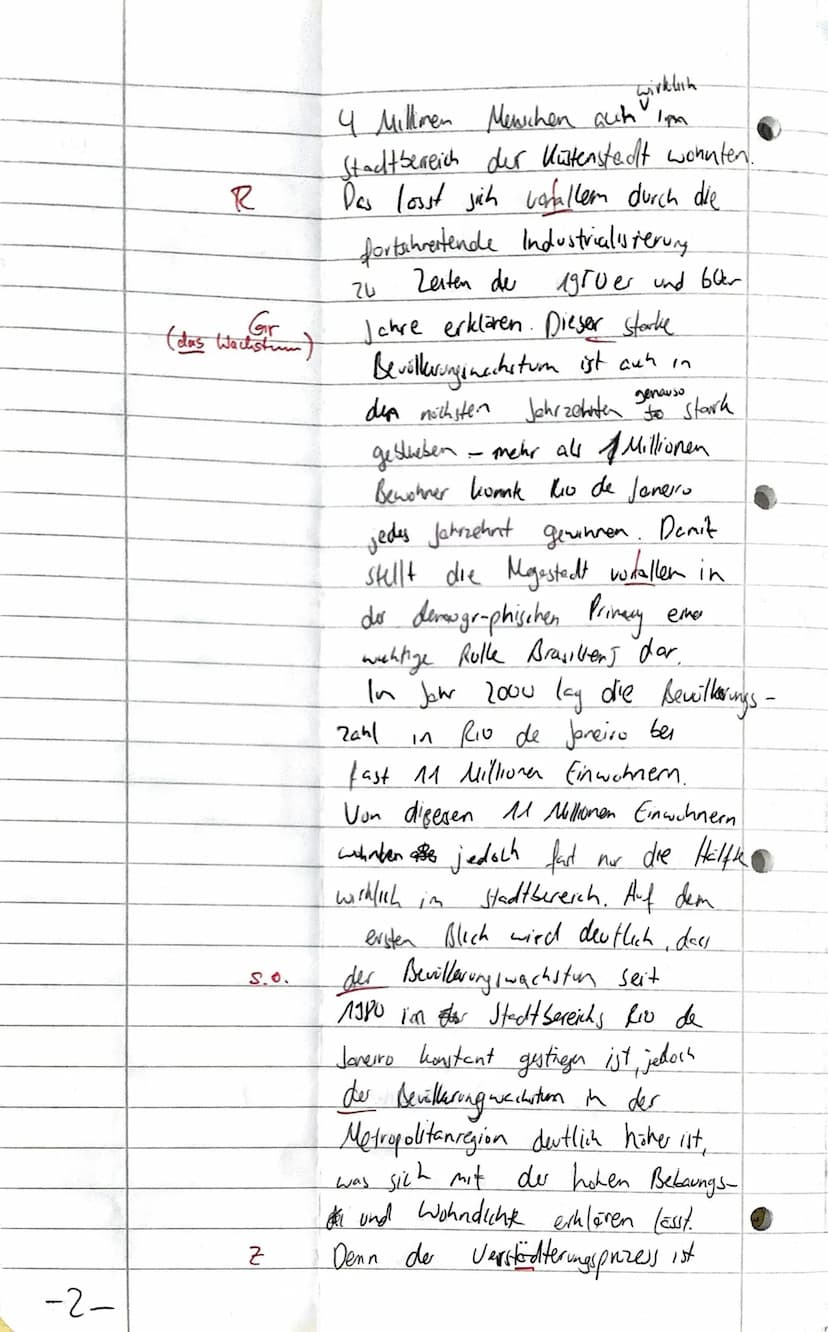 wirklich
4 Millionen Menschen auch im
Stadtbereich der Küstenstadt wohnten.
R Das lässt sich vorallem durch die
fortschreitende Industrialisierung
zu Zeiten der 1950er und 60er
Gr
(das Wachstum) Jahre erklären. Dieser starke
Bevölkerungswachstum ist auch in
den nächsten Jahrzehnten genauso stark
geblieben – mehr als 1 Millionen
Bewohner konnte Rio de Janeiro
jedes Jahrzehnt gewinnen. Damit
stellt die Megastadt vorallem in
der demographischen Primacy eine
wichtige Rolle Brasiliens dar.
Im Jahr 2000 lag die Bevölkerungs-
zahl in Rio de Janeiro bei
fast 11 Millionen Einwohnern.
Von diesen 11 Millionen Einwohnern
wohnten jedoch fast nur die Hälfte
wirklich im Stadtbereich. Auf dem
ersten Blick wird deutlich, dass
s.o. der Bevölkerungswachstum seit
1980 im Stadtbereichs Rio de
Janeiro konstant gestiegen ist, jedoch
der Bevölkerungwachstum in der
Metropolitanregion deutlich höher ist,
was sich mit der hohen Bebaungs-
und Wohndichte erklären lässt.
Z Denn der Verstädterungsprozess ist
-2-